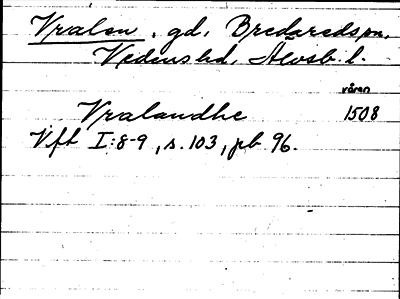 Vralen, gd, Bredaredssn,
Vedens hd, Älvsb. l.
våren
Vralandhe 1508
Vft I:8-9, s. 103, pb 96.